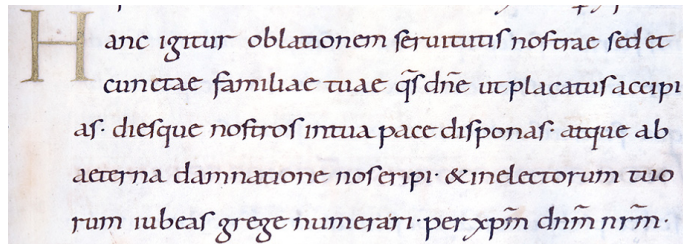 Hanc igitur oblationem seruitutis nostrae sed et
cunctae familiae tuae qs̄ dn̄e ut placatus accipi
as· diesque nostros in tua pace disponas· atque ab
aeterna damnatione nos eripi· & in electorum tuo
rum iubeas grege numerari· per xp̄m dn̄m nr̄m·